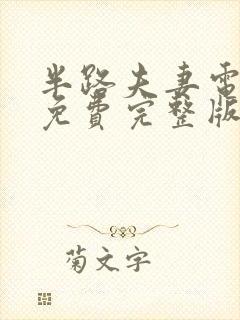 半路夫妻電
免費完整版
菊文字